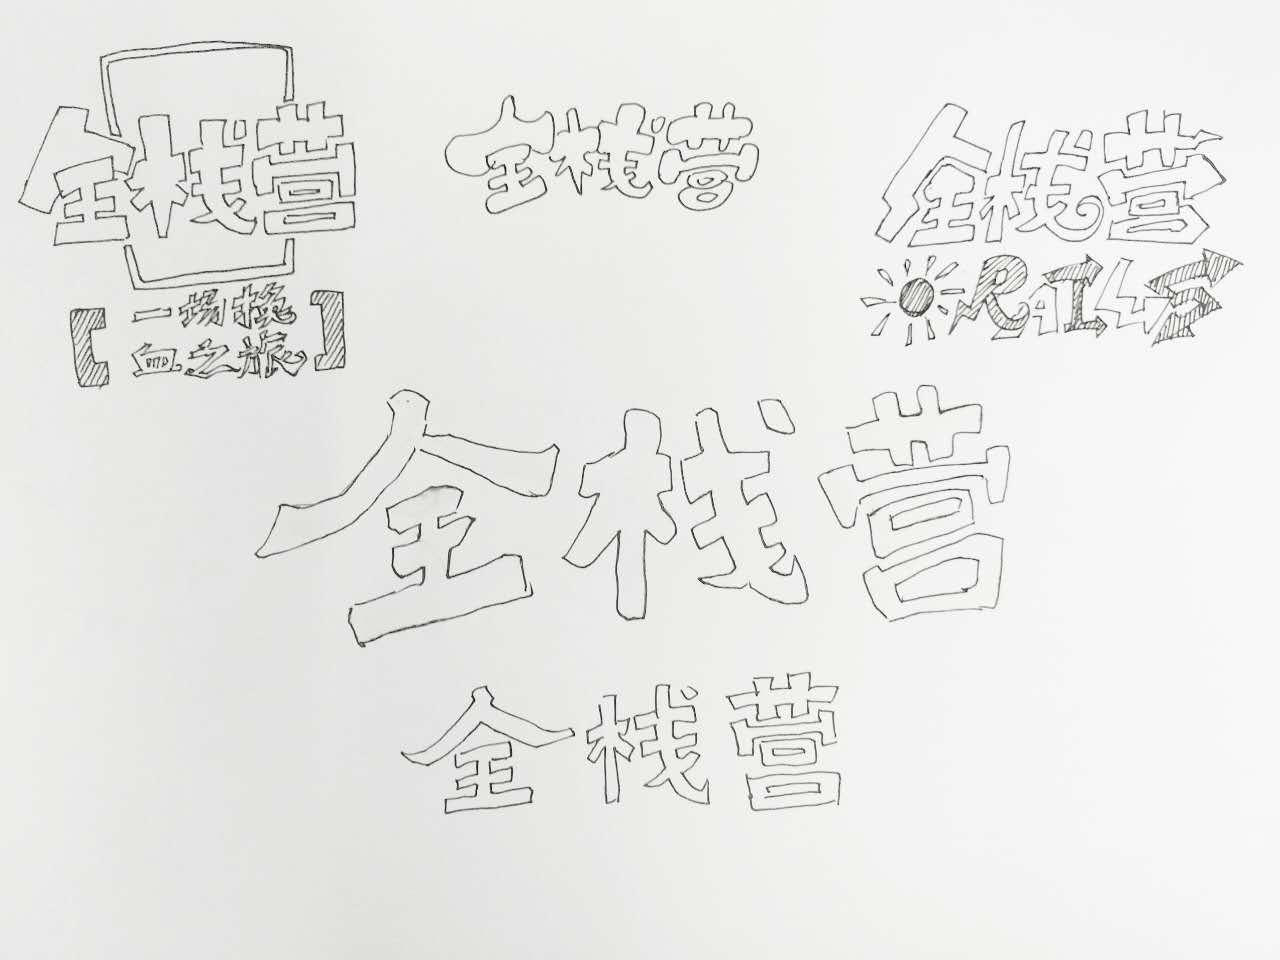 全栈营
【一场换
血之旅】
全栈营
全栈营
RAILS
全栈营
全栈营